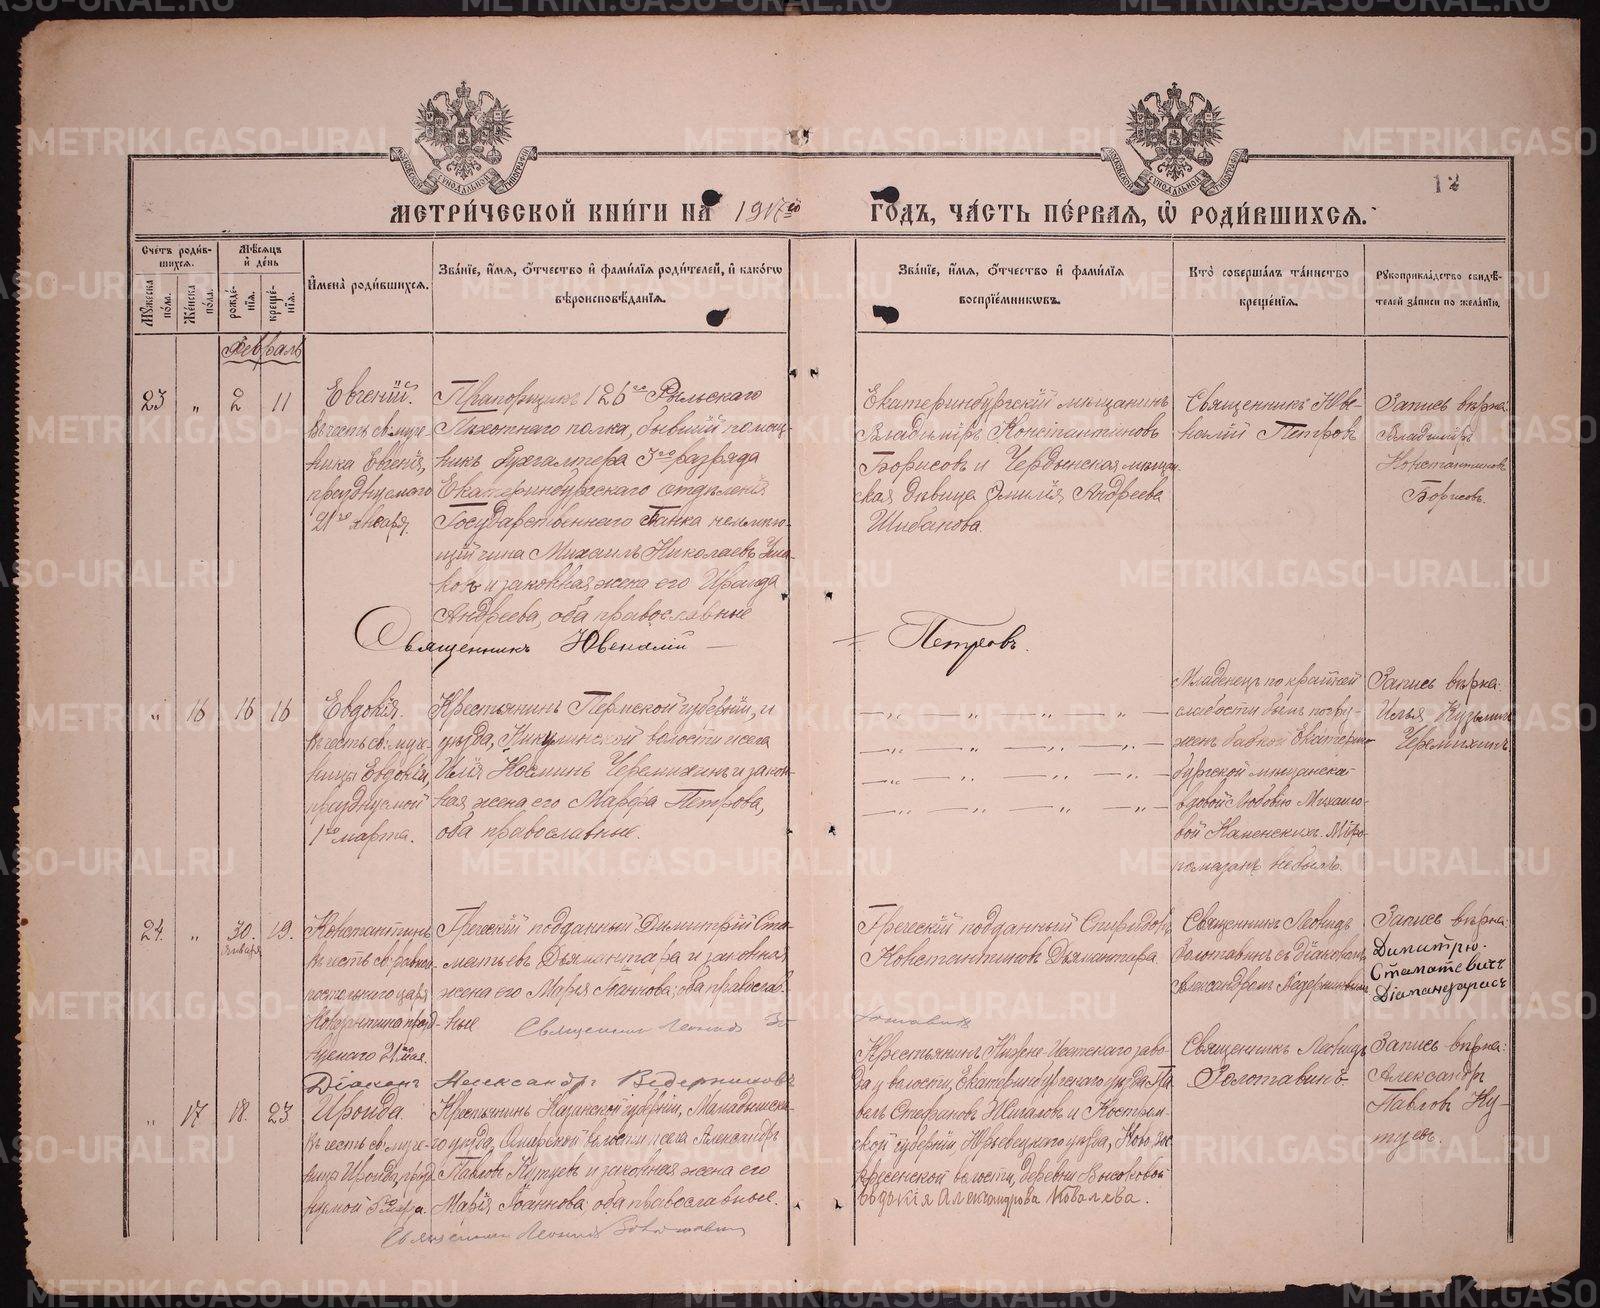 12
МЕТРИЧЕСКОЙ КНИГИ НА 1917й ГОДЪ, ЧАСТЬ ПЕРВАЯ, Ѡ РОДИВШИХСЯ.
Счетъ родив-
шихся.
Мужеска
пола.
Женска
пола.
Мѣсяцъ
и день
рожде-
нія.
креще-
нія.
Имена родившихся.
Званіе, имя, отчество и фамилія родителей, и какогѡ
вѣроисповѣданія.
Званіе, имя, отчество и фамилія
воспріемниковъ.
Кто совершалъ таинство
крещенія.
Рукоприкладство свидѣ-
телей записи по желанію.
Февраль
23 „ 2 11
Евгеній.
Въ честь св. муче-
ника Евгенія,
празднуемого
21го января.
Прапорщикъ 126го Рыльскаго
Пѣхотнаго полка, бывшій помощ-
никъ бухгалтера 3го разряда
Екатеринбургскаго отдѣленія
Государственнаго Банка неимѣю-
щій чина Михаилъ Николаевъ
и законная жена его Ираида
Андреева, оба православные
Екатеринбургскій мѣщанинъ
Владиміръ Константиновъ
Борисовъ и Чердынская мѣщан-
ская дѣвица Эмилія Андреева
Шибанова.
Священникъ Юве-
налій Петровъ
Запись вѣрна:
Владиміръ
Константиновъ
Борисовъ.
Священникъ Ювеналій — = Петровъ.
„ 16 16 16
Евдокія.
Въ честь св. муче-
ницы Евдокіи,
празднуемой
1го марта.
Крестьянинъ Пермской губерніи, и
уѣзда, Никулинской волости и села
Илія Косминъ Черемихинъ и закон-
ная жена его Марѳа Петрова,
оба православные.
Младенецъ по крайней
слабости былъ погру-
женъ бабкой Екатерин-
бургской мѣщанской
вдовой Любовію Михайло-
вой Каменскихъ. Мѵро-
помазанъ небылъ.
Запись вѣрна:
Илья Кузьминъ
Черемихинъ
24. „ 30. января 19.
Константинъ
Въ честь св. равноа-
постольного царя
Константина празд-
нуемаго 21го мая.
Греческій подданный Димитрій Ста-
матьевъ Дьямантара и законная
жена его Марія Іоаннова; оба православ-
ные Священникъ Леонидъ Золотавинъ
Греческій подданный Спиридонъ
Константиновъ Дьямантара.
Священникъ Леонидъ
Золотавинъ съ Діакономъ
Александромъ Ведерниковымъ
Запись вѣрна:
Димитрю.
Стаматевичъ
Діамандарасъ
Діаконъ Александръ Ведерниковъ
„ 17 18. 23.
Ираида
Въ честь св. муче-
ницы Ираиды, празд-
нуемой 5 марта.
Крестьянинъ Казанской губерніи, Мамадышска-
го уѣзда, Омарской волости и села Александръ
Павловъ Кутуевъ и законная жена его
Марія Іоаннова, оба православные.
Крестьянинъ Нижне-Исетскаго заво-
да и волости, Екатеринбургскаго уѣзда Па-
велъ Стефановъ Жигаловъ и Костром-
ской губерніи Юрьевецкаго уѣзда, Ново-Вос-
кресенской волости, деревни Высоковой
Евдокія Александрова Ковалева.
Священникъ Леонидъ
Золотавинъ
Запись вѣрна:
Александръ
Павловъ Ку-
туевъ.
Священникъ Леонидъ Золотавинъ
METRIKI.GASO-URAL.RU